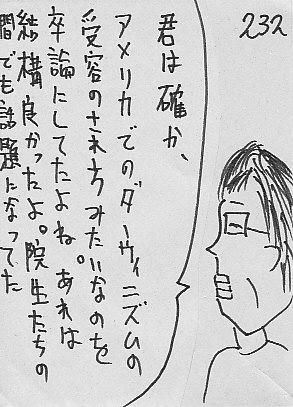 232
君は確か、
アメリカでのダーウィニズムの
受容のされ方みたいなのを
卒論にしてたよね。あれは
結構良かったよ。院生たちの
間でも話題になってた